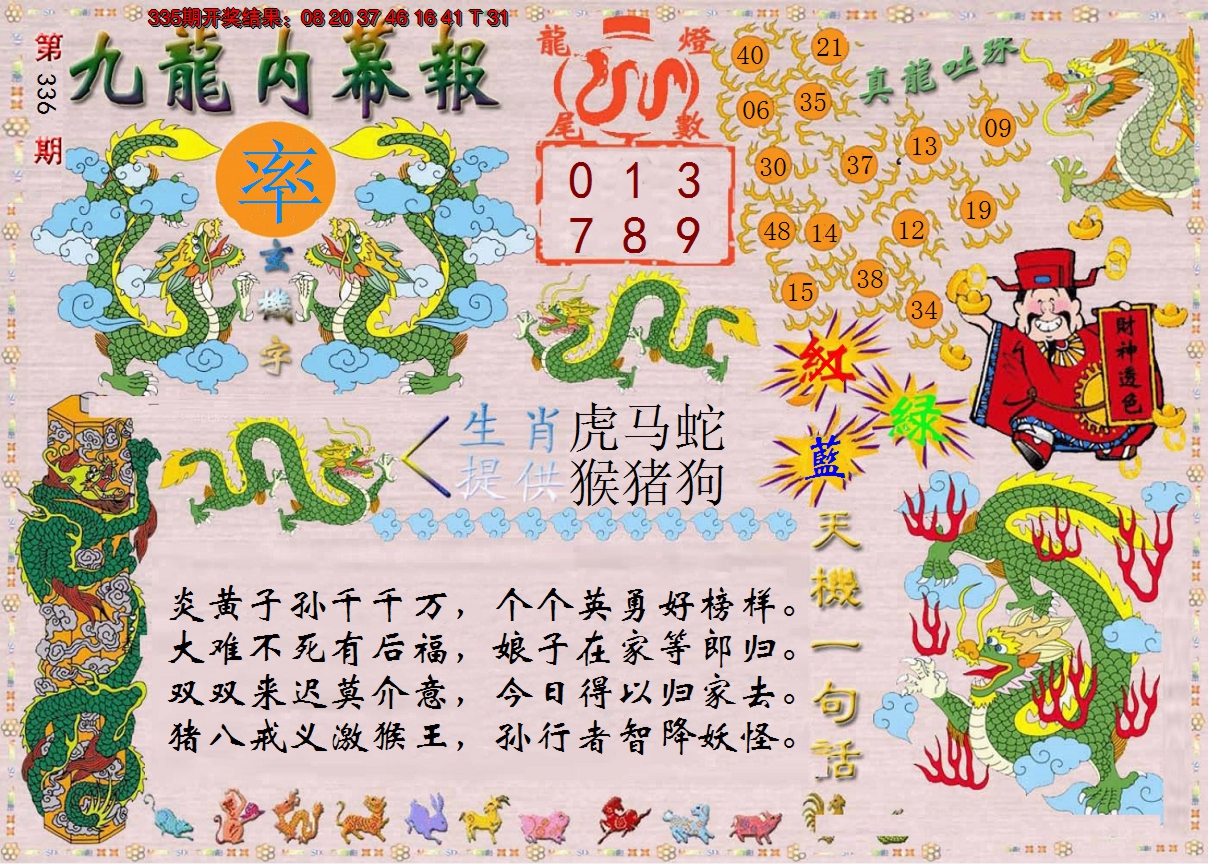 335期开奖结果：08 20 37 46 16 41 T 31
第336期
九龍内幕報
率
玄機字
龍燈尾數
0 1 3
7 8 9
真龍吐珠
40 21
06 35
30 37 13 09
48 14 12 19
15 38 34
財神透色
紅
綠
藍
生肖提供
虎马蛇
猴猪狗
炎黄子孙千千万，个个英勇好榜样。
大难不死有后福，娘子在家等郎归。
双双来迟莫介意，今日得以归家去。
猪八戒义激猴王，孙行者智降妖怪。
天機一句話